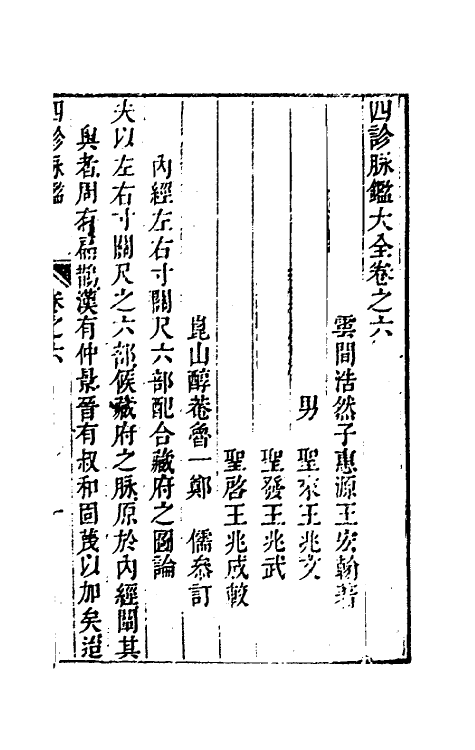 四診脉鑑大全卷之六
雲間浩然子惠源王宏翰著
男　聖來王兆文
聖發王兆武
聖啓王兆成較
崑山醇菴魯一鄭　儒叅訂
內經左右寸關尺六部配合藏府之圖論
夫以左右寸關尺之六部候藏府之脉原於內經闡其
與者周有扁鵲漢有仲景晉有叔和固蔑以加矣迨
四診脉鑑　卷之六　一